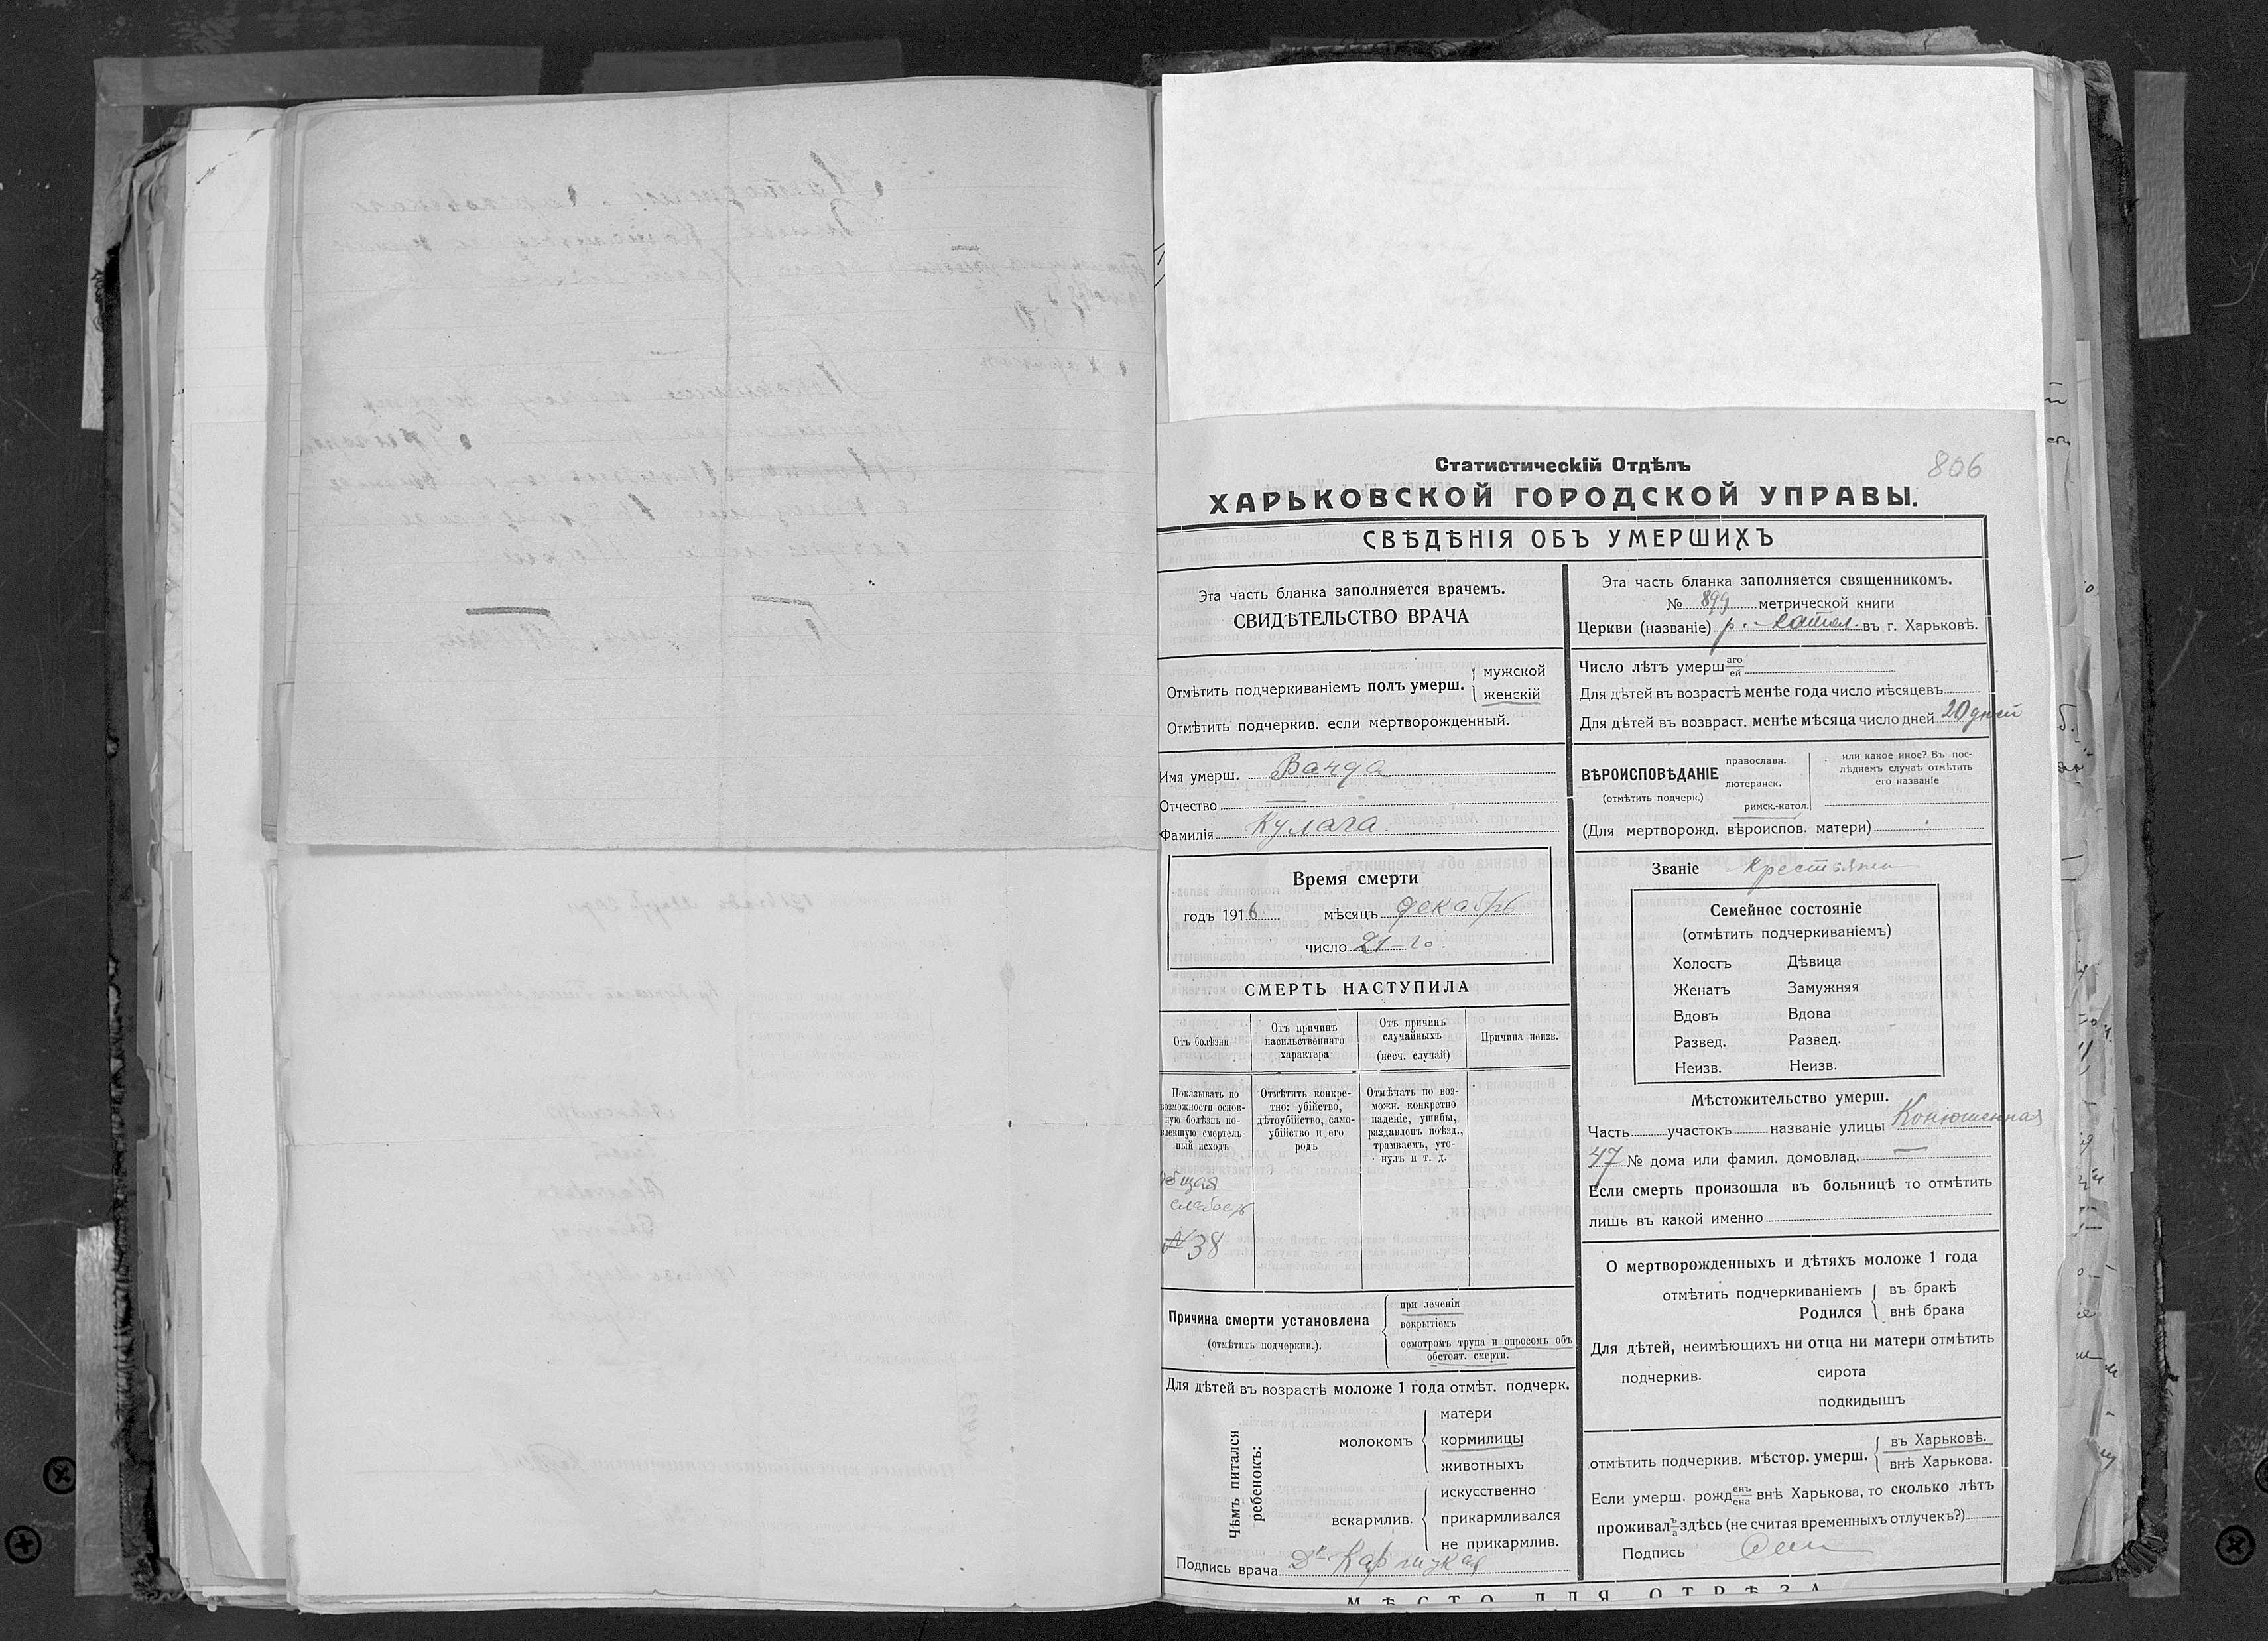 806
Статистическій Отдѣлъ
ХАРЬКОВСКОЙ ГОРОДСКОЙ УПРАВЫ.
СВѢДѢНІЯ ОБЪ УМЕРШИХЪ
Эта часть бланка заполняется врачемъ.
СВИДѢТЕЛЬСТВО ВРАЧА
Отмѣтить подчеркиваніемъ полъ умерш. { мужской
женскій
Отмѣтить подчеркив. если мертворожденный.
Имя умерш. Ванда
Отчество —
Фамилія Кулага
Время смерти
годъ 1916 мѣсяцъ декабрь
число 21-го.
СМЕРТЬ НАСТУПИЛА
Отъ болѣзни
Отъ причинъ
насильственнаго
характера
Отъ причинъ
случайныхъ
(несч. случай)
Причина неизв.
Показывать по
возможности основ-
ную болѣзнь по-
влекшую смертель-
ный исходъ
Отмѣтить конкре-
тно: убійство,
дѣтоубійство, само-
убійство и его
родъ
Отмѣчать по воз-
можн. конкретно
паденіе, ушибы,
раздавленъ поѣзд.,
трамваемъ, уто-
нулъ и т. д.
Общая
слабость
№ 38
Причина смерти установлена
(отмѣтить подчеркив.).
при леченіи
вскрытіемъ
осмотромъ трупа и опросомъ объ
обстоят. смерти.
Для дѣтей въ возрастѣ моложе 1 года отмѣт. подчерк.
Чѣмъ питался
ребенокъ:
молокомъ { матери
кормилицы
животныхъ
вскармлив. { искусственно
прикармливался
не прикармлив.
Подпись врача Д-р
Эта часть бланка заполняется священникомъ.
№ 899 метрической книги
Церкви (названіе) р.-катол. въ г. Харьковѣ.
Число лѣтъ умерш аго
ей
Для дѣтей въ возрастѣ менѣе года число мѣсяцевъ
Для дѣтей въ возвраст. менѣе мѣсяца число дней 20 дней
ВѢРОИСПОВѢДАНІЕ
(отмѣтить подчерк.)
православн.
лютеранск.
римск.-катол.
или какое иное? Въ пос-
лѣднемъ случаѣ отмѣтить
его названіе
(Для мертворожд. вѣроиспов. матери)
Званіе Крестьянка
Семейное состояніе
(отмѣтить подчеркиваніемъ)
Холостъ Дѣвица
Женатъ Замужняя
Вдовъ Вдова
Развед. Развед.
Неизв. Неизв.
Мѣстожительство умерш.
Часть участокъ названіе улицы Конюшенная
47 № дома или фамил. домовлад. —
Если смерть произошла въ больницѣ то отмѣтить
лишь въ какой именно
О мертворожденныхъ и дѣтяхъ моложе 1 года
отмѣтить подчеркиваніемъ { въ бракѣ
Родился внѣ брака
Для дѣтей, неимѣющихъ ни отца ни матери отмѣтить
подчеркив. сирота
подкидышъ
отмѣтить подчеркив. мѣстор. умерш. { въ Харьковѣ.
внѣ Харькова.
Если умерш. рожд енъ
ена внѣ Харькова, то сколько лѣтъ
проживал ъ
а здѣсь (не считая временныхъ отлучекъ?)
Подпись
МѢСТО ДЛЯ ОТРѢЗА